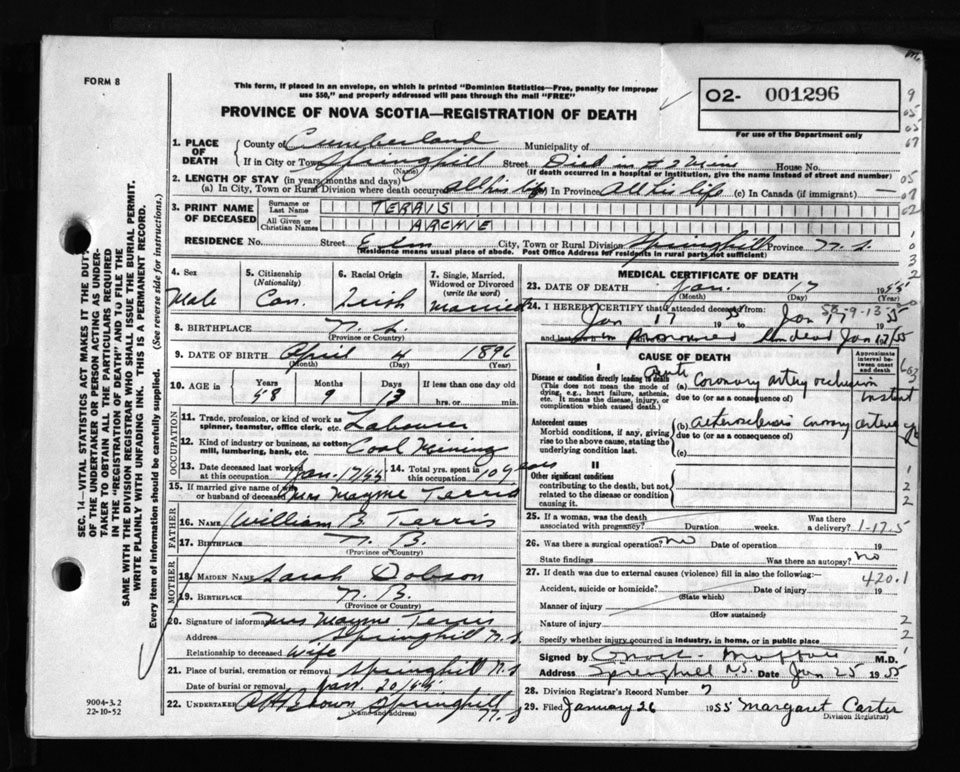 FORM 8
This form, if placed in an envelope, on which is printed "Dominion Statistics—Free, penalty for improper
use $50," and properly addressed will pass through the mail "FREE"
PROVINCE OF NOVA SCOTIA—REGISTRATION OF DEATH
02- 001296
For use of the Department only
1. PLACE OF DEATH
County of Cumberland Municipality of
If in City or Town Springhill Street Died in #2 Mine House No.
(Name) (If death occurred in a hospital or institution, give the name instead of street and number)
2. LENGTH OF STAY (in years months and days)
(a) In City, Town or Rural Division where death occurred All his life In Province All his life (c) In Canada (if immigrant)
3. PRINT NAME OF DECEASED
Surname or Last Name TERRIS
All Given or Christian Names ARCHIE
RESIDENCE No. Street Elm City, Town or Rural Division Springhill Province N.S.
(Residence means usual place of abode. Post Office Address for residents in rural parts not sufficient)
4. Sex Male
5. Citizenship (Nationality) Can.
6. Racial Origin Irish
7. Single, Married, Widowed or Divorced (write the word) Married
8. BIRTHPLACE N.S.
(Province or Country)
9. DATE OF BIRTH April 4 1896
(Month) (Day) (Year)
10. AGE in Years 58 Months 9 Days 13 If less than one day old
hrs. or min.
OCCUPATION
11. Trade, profession, or kind of work as spinner, teamster, office clerk, etc. Labourer
12. Kind of industry or business, as cotton-mill, lumbering, bank, etc. Coal Mining
13. Date deceased last worked at this occupation Jan. 17/55 14. Total yrs. spent in this occupation 10 years
15. If married give name of wife or husband of deceased Mrs Mayme Terris
FATHER
16. NAME William B. Terris
17. BIRTHPLACE N.B.
(Province or Country)
MOTHER
18. MAIDEN NAME Sarah Dobson
19. BIRTHPLACE N.B.
(Province or Country)
20. Signature of informant Mrs Mayme Terris
Address Springhill N.S.
Relationship to deceased Wife
21. Place of burial, cremation or removal Springhill N.S.
Date of burial or removal Jan. 20/55
22. UNDERTAKER Brown Springhill N.S
(Name and address)
MEDICAL CERTIFICATE OF DEATH
23. DATE OF DEATH Jan. 17 1955
(Month) (Day) (Year)
58-9-13
24. I HEREBY CERTIFY that I attended deceased from
Jan 17 1955 to Jan 17 1955
and pronounced him dead Jan 17/55
CAUSE OF DEATH
Approximate interval between onset and death
I
Disease or condition directly leading to death
(This does not mean the mode of dying, e.g., heart failure, asthenia, etc. It means the disease, injury, or complication which caused death.)
(a) Acute Coronary artery occlusion instant
due to (or as a consequence of)
Antecedent causes
Morbid conditions, if any, giving rise to the above cause, stating the underlying condition last.
(b) arteriosclerosis coronary arteries
due to (or as a consequence of)
(c)
II
Other significant conditions
contributing to the death, but not related to the disease or condition causing it.
25. If a woman, was the death associated with pregnancy? Duration weeks. Was there a delivery?
1-17-5
26. Was there a surgical operation? No Date of operation 19
State findings Was there an autopsy? No
27. If death was due to external causes (violence) fill in also the following:—
420.1
Accident, suicide or homicide? Date of injury 19
(State which)
Manner of injury
(How sustained)
Nature of injury
Specify whether injury occurred in industry, in home, or in public place
Signed by M.D.
Address Springhill N.S. Date Jan 25 1955
28. Division Registrar's Record Number 7
29. Filed January 26 1955 Margaret Carter
Division Registrar)
SEC. 14—VITAL STATISTICS ACT MAKES IT THE DUTY
OF THE UNDERTAKER OR PERSON ACTING AS UNDER-
TAKER TO OBTAIN ALL THE PARTICULARS REQUIRED
IN THE "REGISTRATION OF DEATH" AND TO FILE THE
SAME WITH THE DIVISION REGISTRAR WHO SHALL ISSUE THE BURIAL PERMIT.
WRITE PLAINLY WITH UNFADING INK. THIS IS A PERMANENT RECORD.
Every item of information should be carefully supplied. (See reverse side for instructions.)
9004-3.2
22-10-52